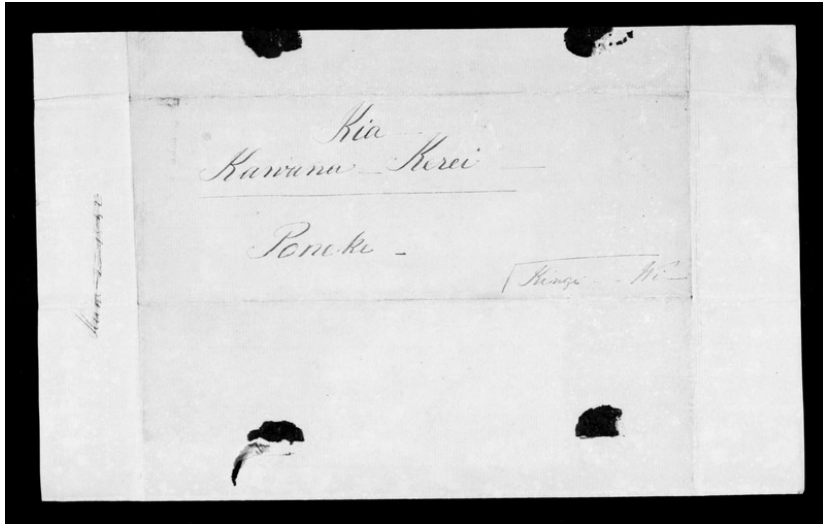 Kia
Kawana - Kerei -
Poneke -
Kingi - Wi -